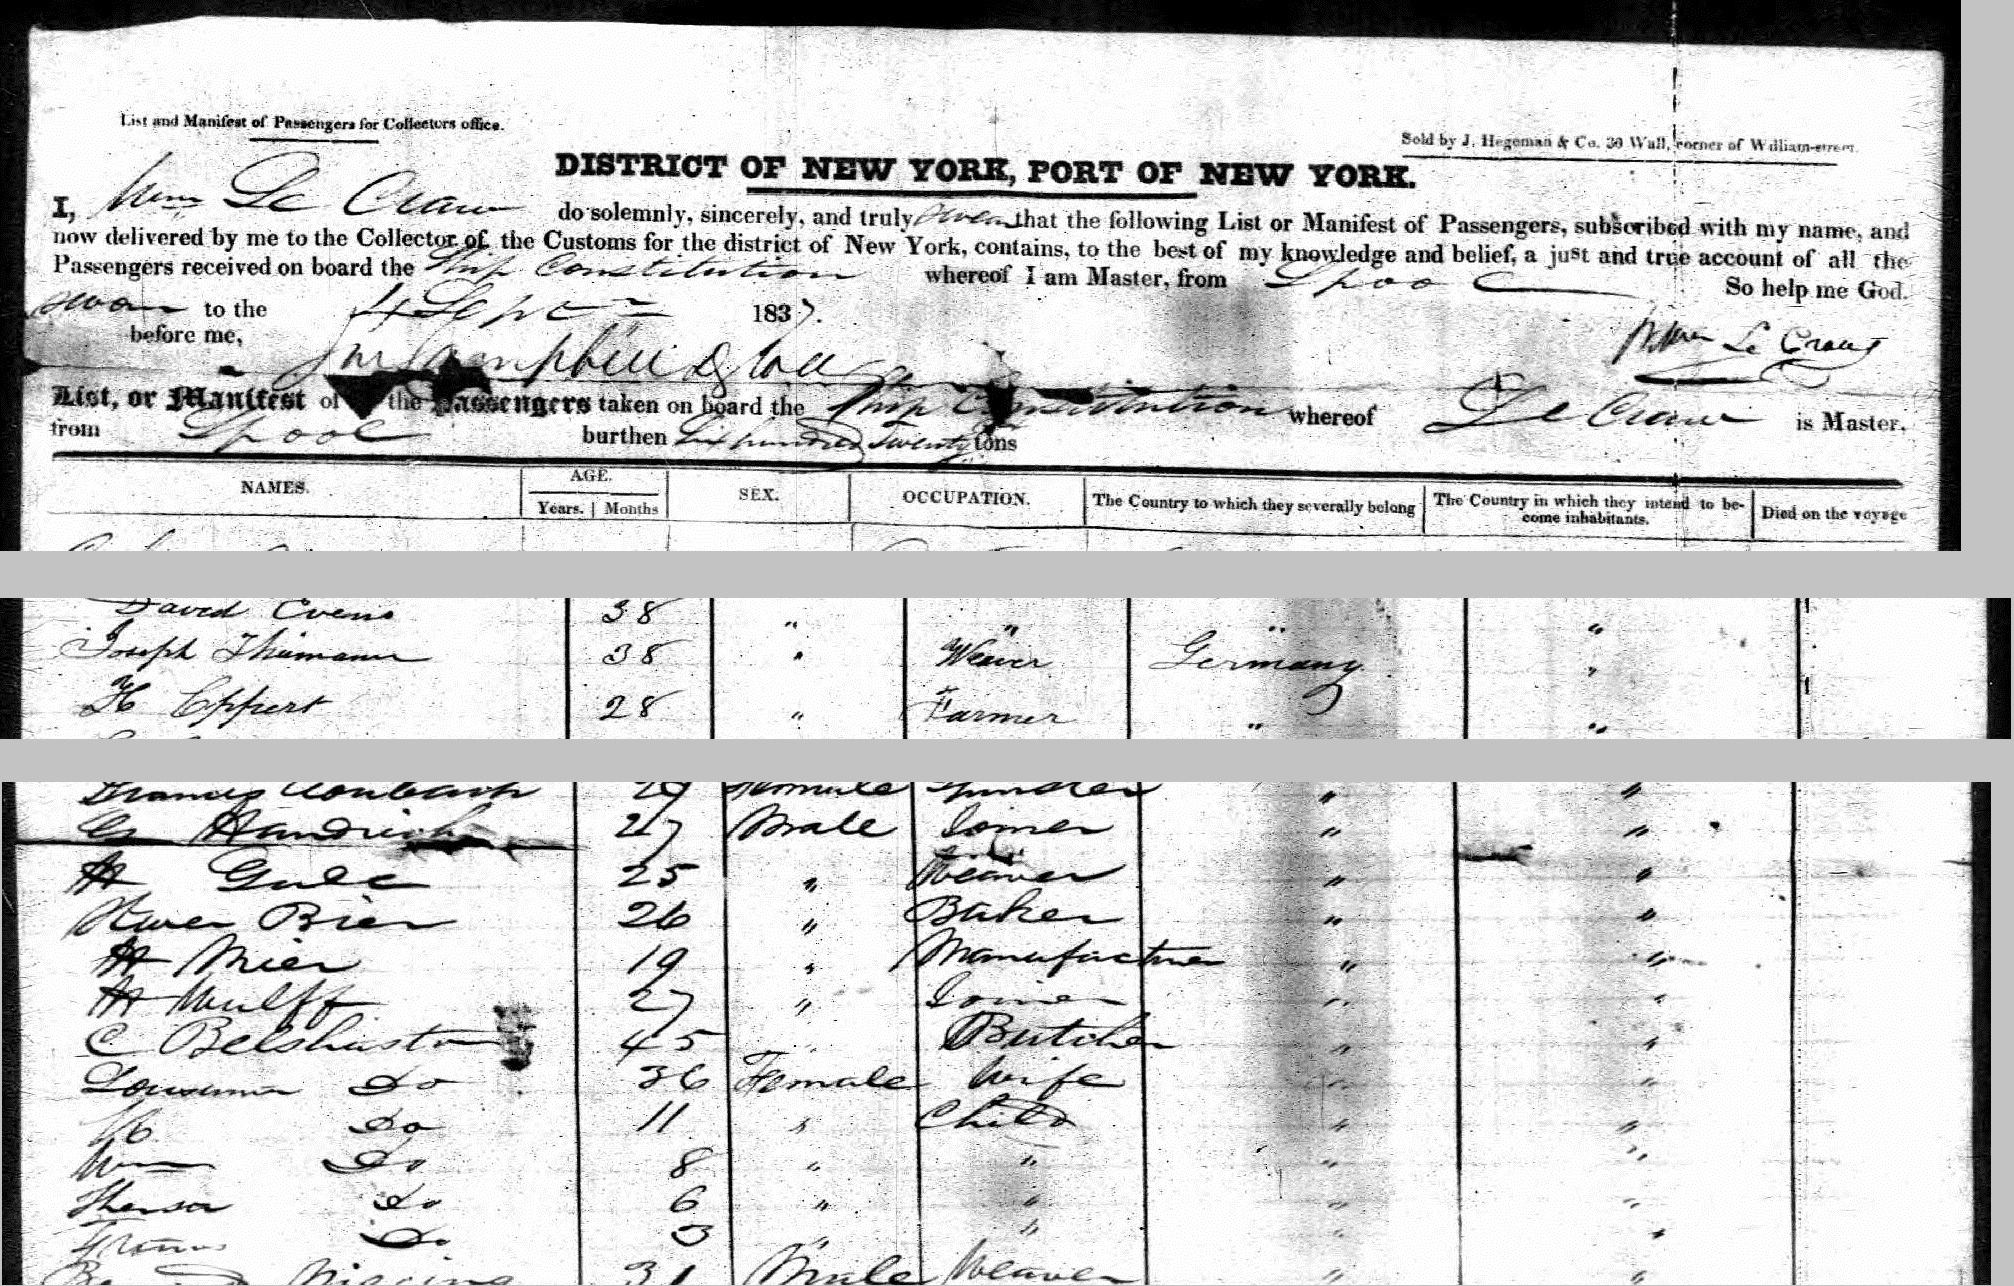 List and Manifest of Passengers for Collectors office.
Sold by J. Hegeman & Co. 30 Wall, corner of William-street.
DISTRICT OF NEW YORK, PORT OF NEW YORK.
I, Wm Le Craw do solemnly, sincerely, and truly swear that the following List or Manifest of Passengers, subscribed with my name, and
now delivered by me to the Collector of the Customs for the district of New York, contains, to the best of my knowledge and belief, a just and true account of all the
Passengers received on board the Ship Constitution whereof I am Master, from Lpool So help me God.
Sworn to the 4 Sepr 1837.
before me, Wm Le Craw
List, or Manifest of the Passengers taken on board the Ship Constitution whereof Le Craw is Master,
from Lpool burthen Six hundred Twenty tons
NAMES. AGE. SEX. OCCUPATION. The Country to which they severally belong The Country in which they intend to become inhabitants. Died on the voyage
Years. Months
David Evens 38 " " " "
Joseph Thiemann 38 " Weaver Germany "
H Eppert 28 " Farmer " "
Francis 29 " "
27 Male Joiner " "
H 25 " Weaver " "
Bier 26 " Baker " "
H Mier 19 " Manufacturer " "
H Wulff 27 " Joiner " "
C 45 " Butcher " "
Do 36 Female Wife " "
Do 11 " Child " "
Wm Do 8 " " " "
Do 6 " " " "
Do 3 " " " "
31 Male Weaver " "